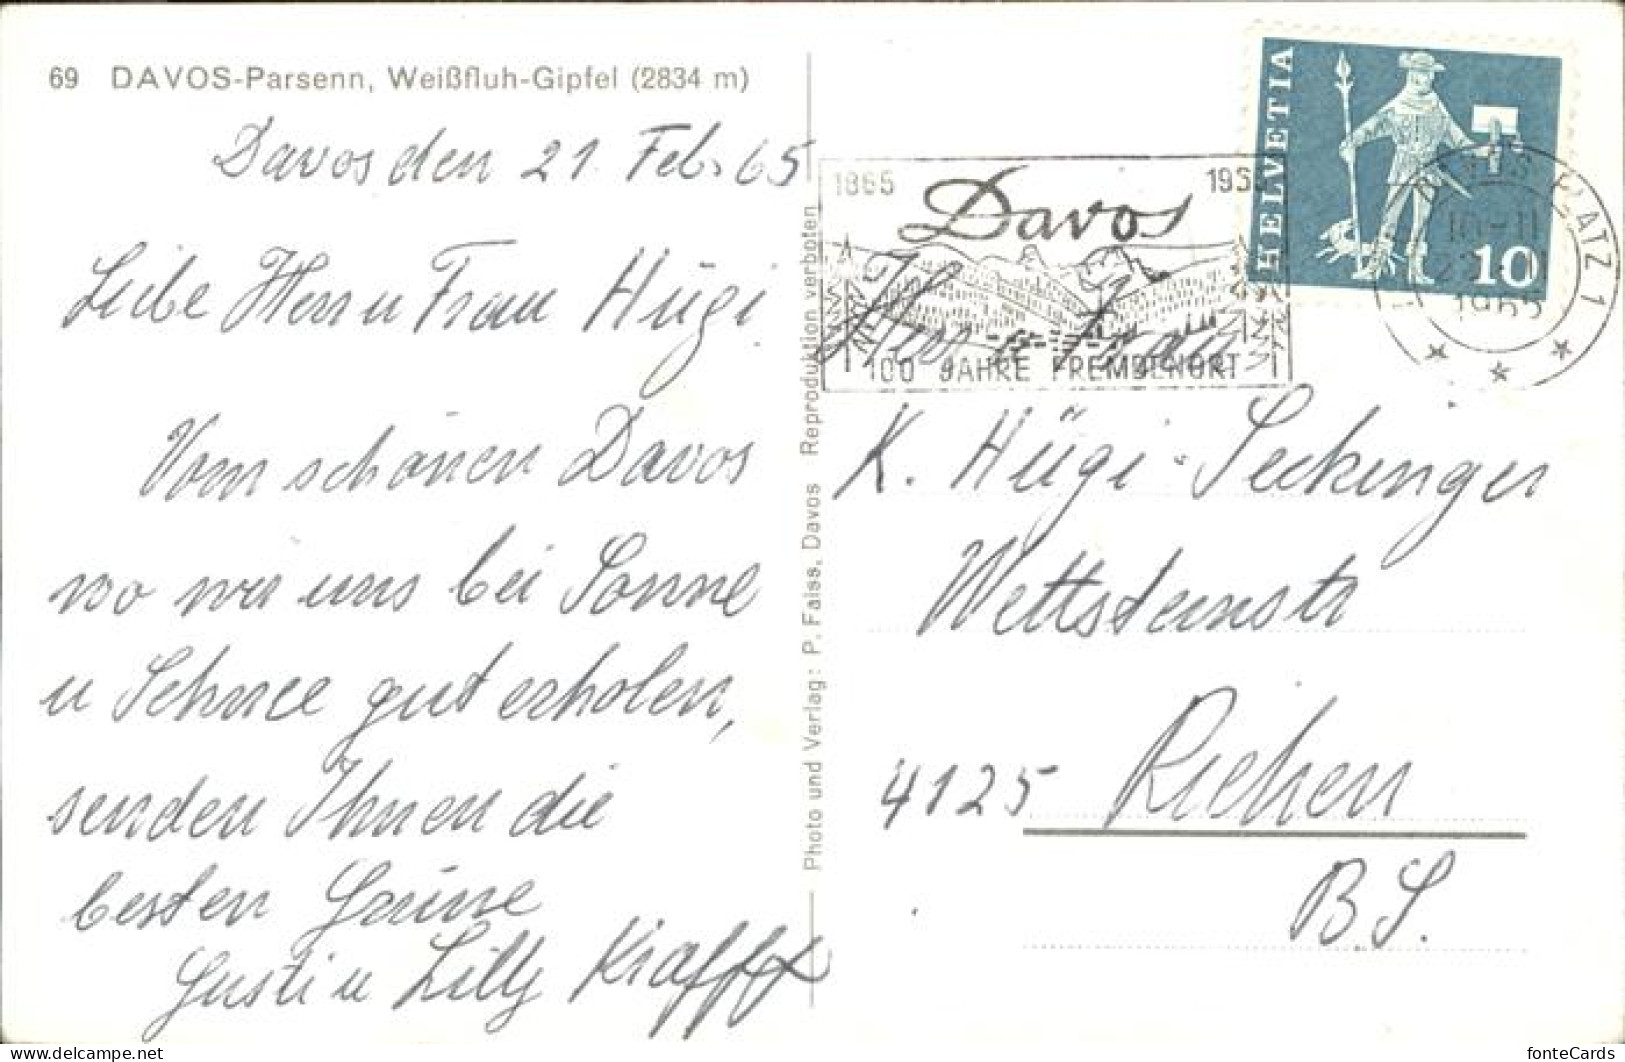 69 DAVOS-Parsenn, Weißfluh-Gipfel (2834 m)
Davos den 21. Feb. 65
Liebe Herr u Frau Hügi
Vom schönen Davos
wo wir uns bei Sonne
u Schnee gut erholen,
senden Ihnen die
besten Grüsse
Gusti u Lilly Krafft
Photo und Verlag: P. Faiss, Davos Reproduktion verboten
1865 1965
Davos
100 JAHRE FREMDENORT
HELVETIA
10
DAVOS PLATZ 1
1965
Herr u Frau
K. Hügi-Seckinger
Wettsteinstr
4125 Riehen
B.S.
delcampe.net
fonteCards